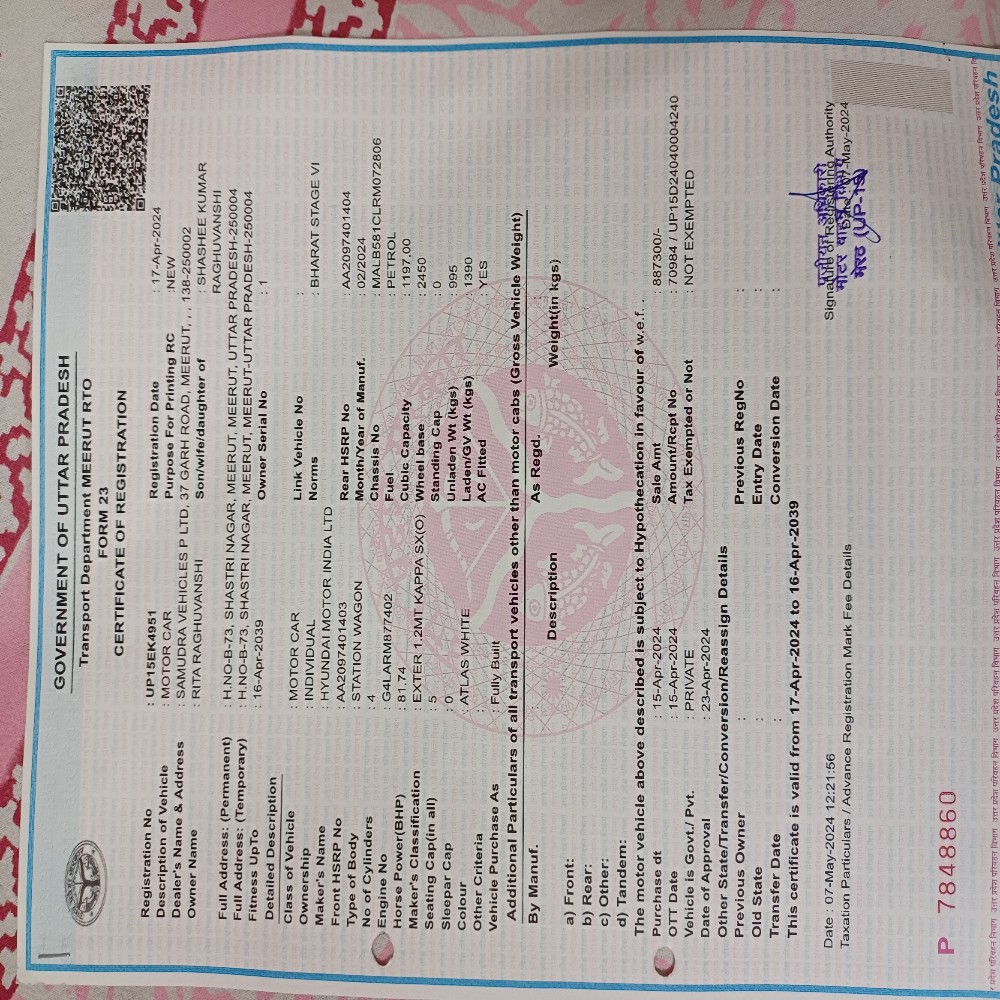 GOVERNMENT OF UTTAR PRADESH
Transport Department MEERUT RTO
FORM 23
CERTIFICATE OF REGISTRATION
Registration No : UP15EK4951 Registration Date : 17-Apr-2024
Description of Vehicle : MOTOR CAR Purpose For Printing RC :NEW
Dealer's Name & Address : SAMUDRA VEHICLES P LTD, 37 GARH ROAD, MEERUT, , , 138-250002
Owner Name : RITA RAGHUVANSHI Son/wife/daughter of : SHASHEE KUMAR
RAGHUVANSHI
Full Address: (Permanent) : H.NO-B-73, SHASTRI NAGAR, MEERUT, MEERUT, UTTAR PRADESH-250004
Full Address: (Temporary) : H.NO-B-73, SHASTRI NAGAR, MEERUT, MEERUT-UTTAR PRADESH-250004
Fitness UpTo : 16-Apr-2039 Owner Serial No : 1
Detailed Description
Class of Vehicle : MOTOR CAR Link Vehicle No :
Ownership : INDIVIDUAL Norms : BHARAT STAGE VI
Maker's Name : HYUNDAI MOTOR INDIA LTD
Front HSRP No : AA2097401403 Rear HSRP No : AA2097401404
Type of Body : STATION WAGON Month/Year of Manuf. : 02/2024
No of Cylinders : 4 Chassis No : MALB581CLRM072806
Engine No : G4LARM877402 Fuel : PETROL
Horse Power(BHP) : 81.74 Cubic Capacity : 1197.00
Maker's Classification : EXTER 1.2MT KAPPA SX(O) Wheel base : 2450
Seating Cap(in all) : 5 Standing Cap : 0
Sleepar Cap : 0 Unladen Wt (kgs) : 995
Colour : ATLAS WHITE Laden/GV Wt (kgs) : 1390
Other Criteria : AC Fitted : YES
Vehicle Purchase As : Fully Built
Additional Particulars of all transport vehicles other than motor cabs (Gross Vehicle Weight)
By Manuf. Description As Regd. Weight(in kgs)
a) Front:
b) Rear:
c) Other:
d) Tandem:
The motor vehicle above described is subject to Hypothecation in favour of w.e.f. .
Purchase dt : 15-Apr-2024 Sale Amt : 887300/-
OTT Date : 15-Apr-2024 Amount/Rcpt No : 70984 / UP15D24040004240
Vehicle is Govt./ Pvt. : PRIVATE Tax Exempted or Not : NOT EXEMPTED
Date of Approval : 23-Apr-2024
Other State/Transfer/Conversion/Reassign Details
Previous Owner : Previous RegNo :
Old State : Entry Date :
Transfer Date : Conversion Date :
This certificate is valid from 17-Apr-2024 to 16-Apr-2039
Date : 07-May-2024 12:21:56 Signature of Registering Authority
Taxation Particulars / Advance Registration Mark Fee Details Date : 07-May-2024
पंजीयन अधिकारी
मोटर वाहन विभाग
मेरठ (UP-15)
P 7848860
Uttar Pradesh
उत्तर प्रदेश परिवहन विभाग